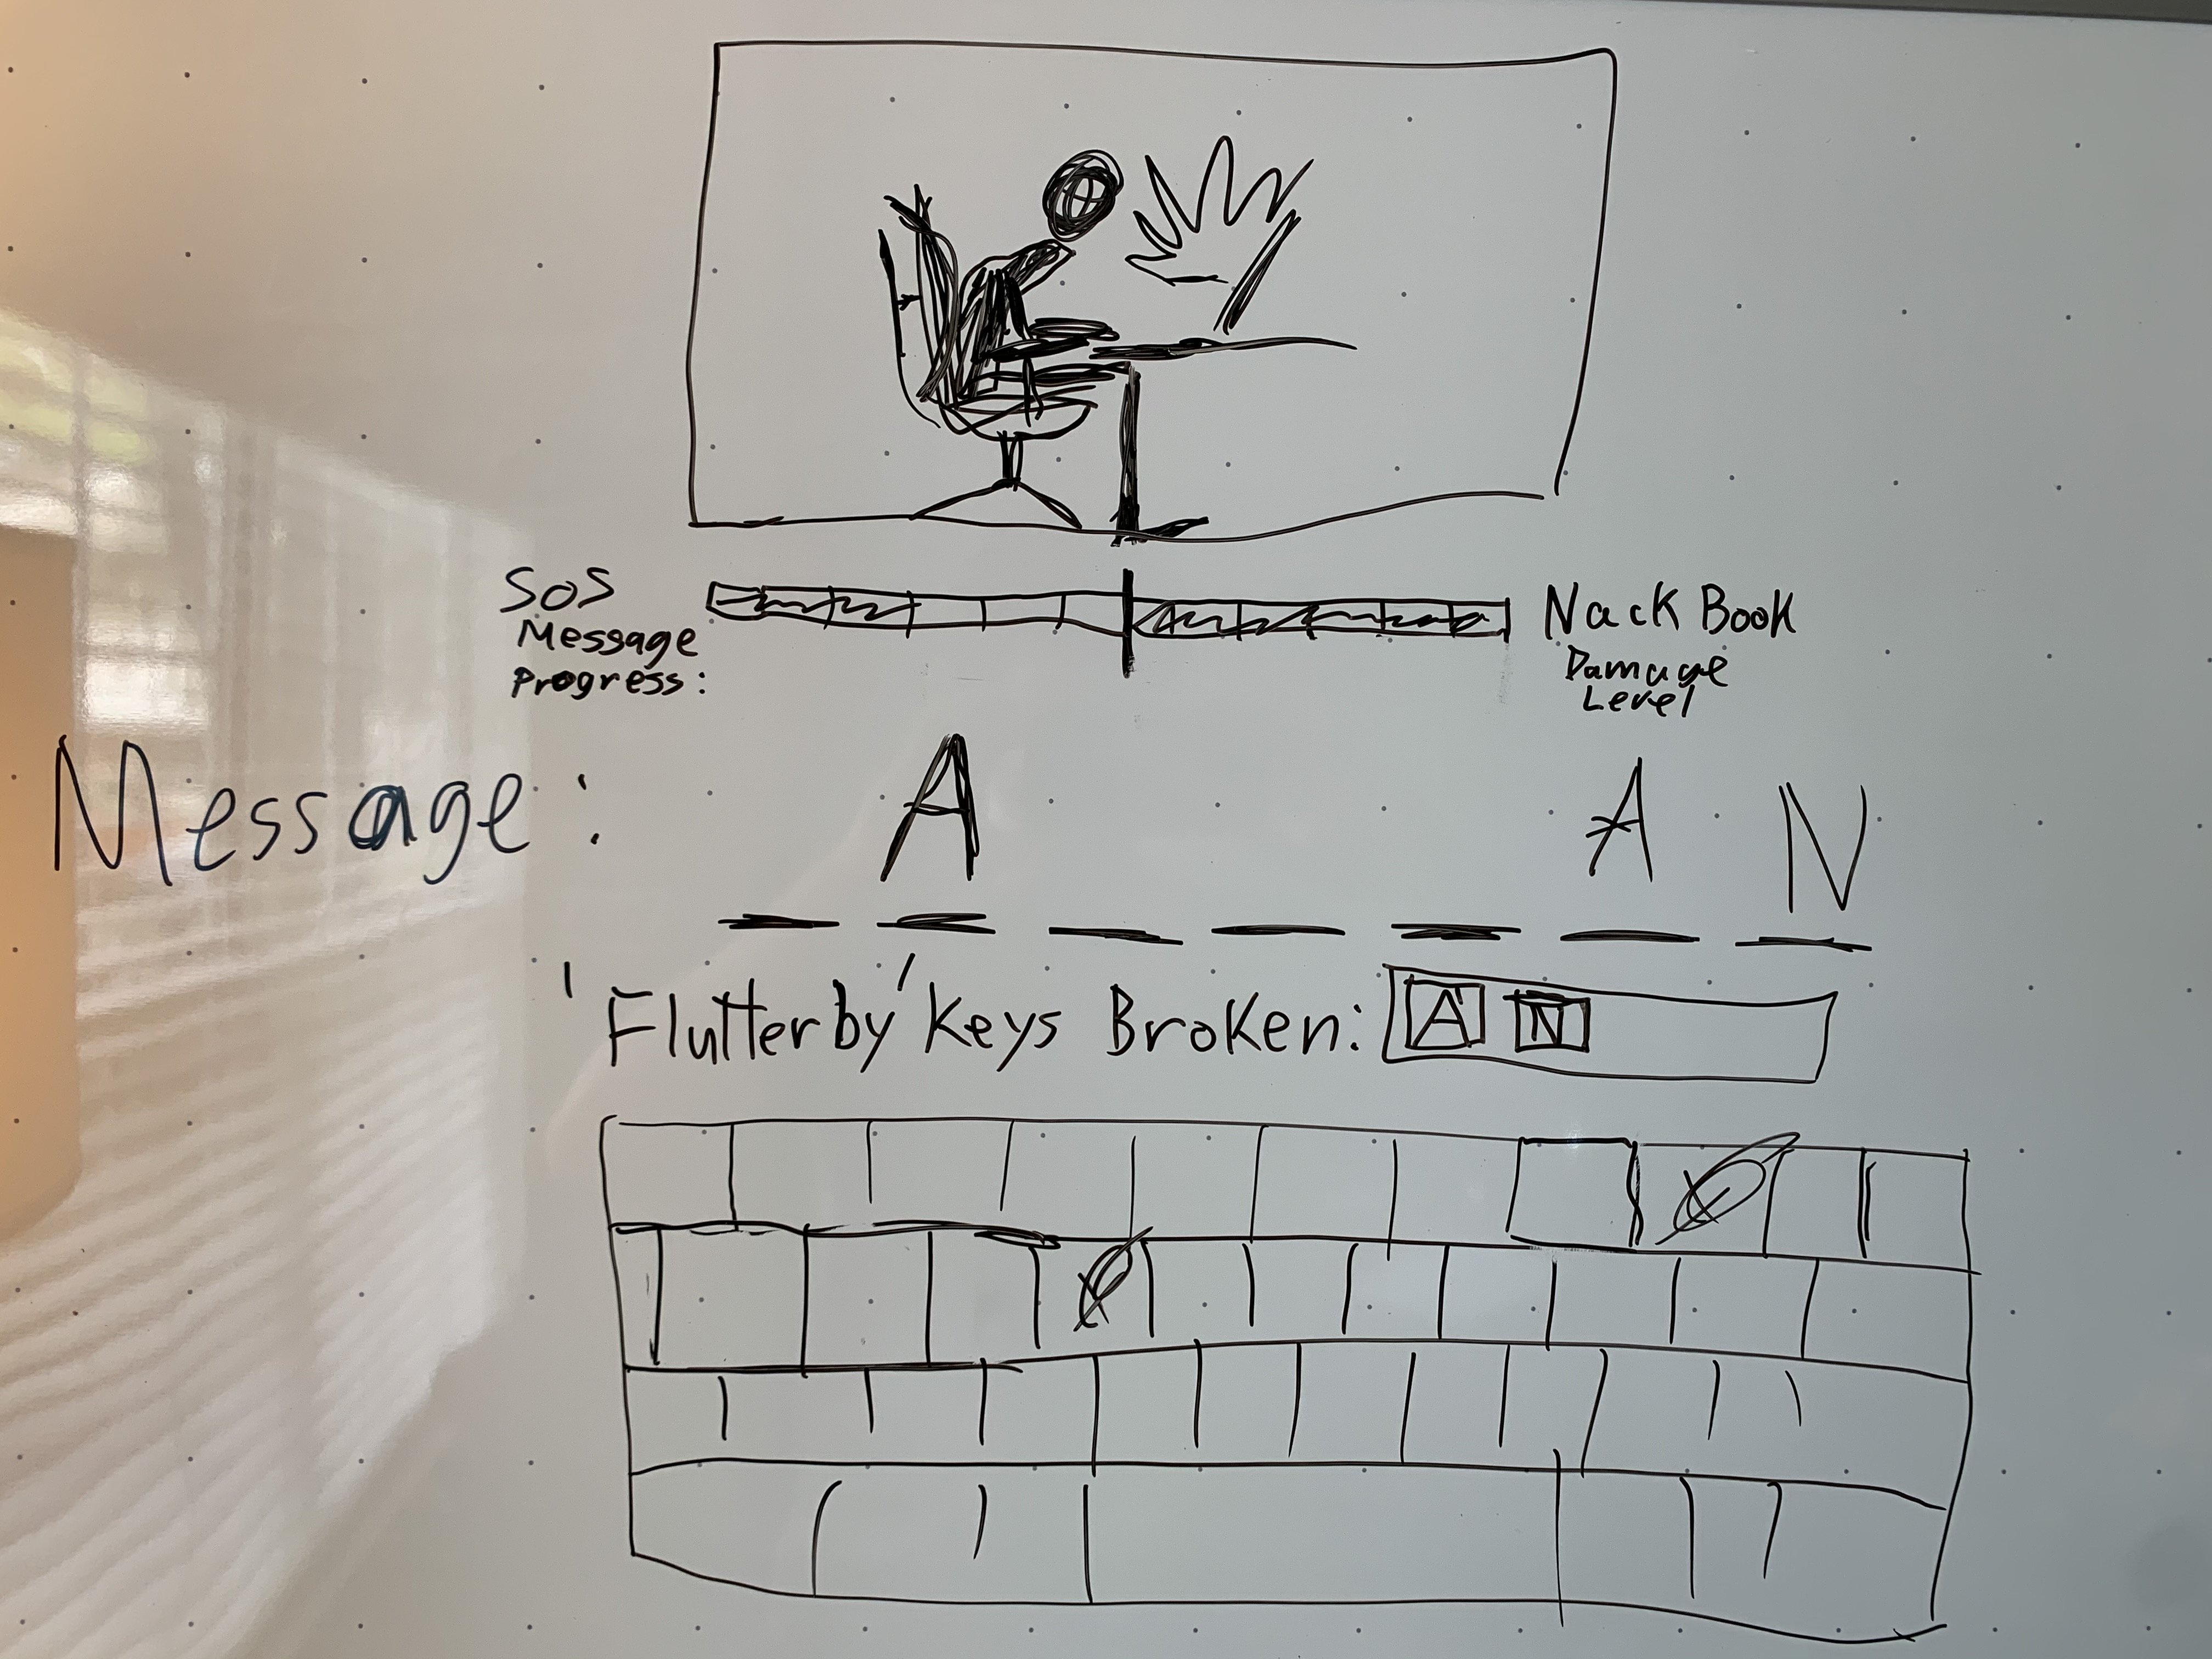 SOS
Message
Progress:
Nack Book
Damage
Level
Message: A A N
'Flutterby' Keys Broken: A N